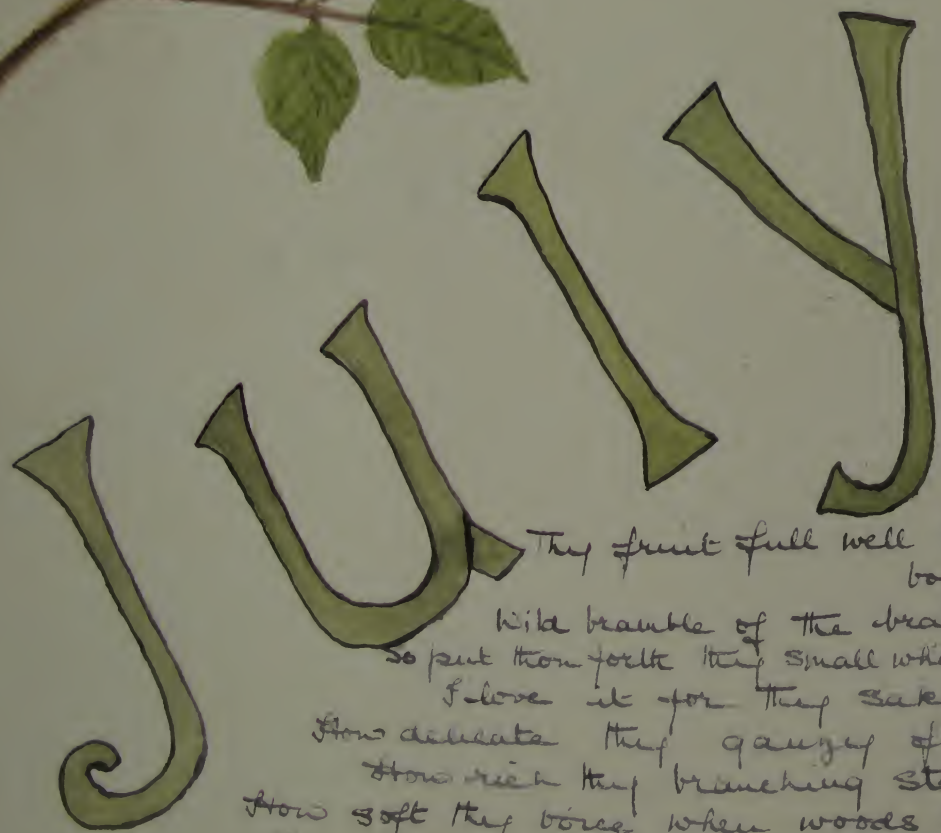 July
Thy fruit full well
bo
Wild bramble of the bra
So put thou forth thy small whi
I love it for thy sak
How delicate thy gauzy f
How rich thy branching st
How soft thy voice when woods